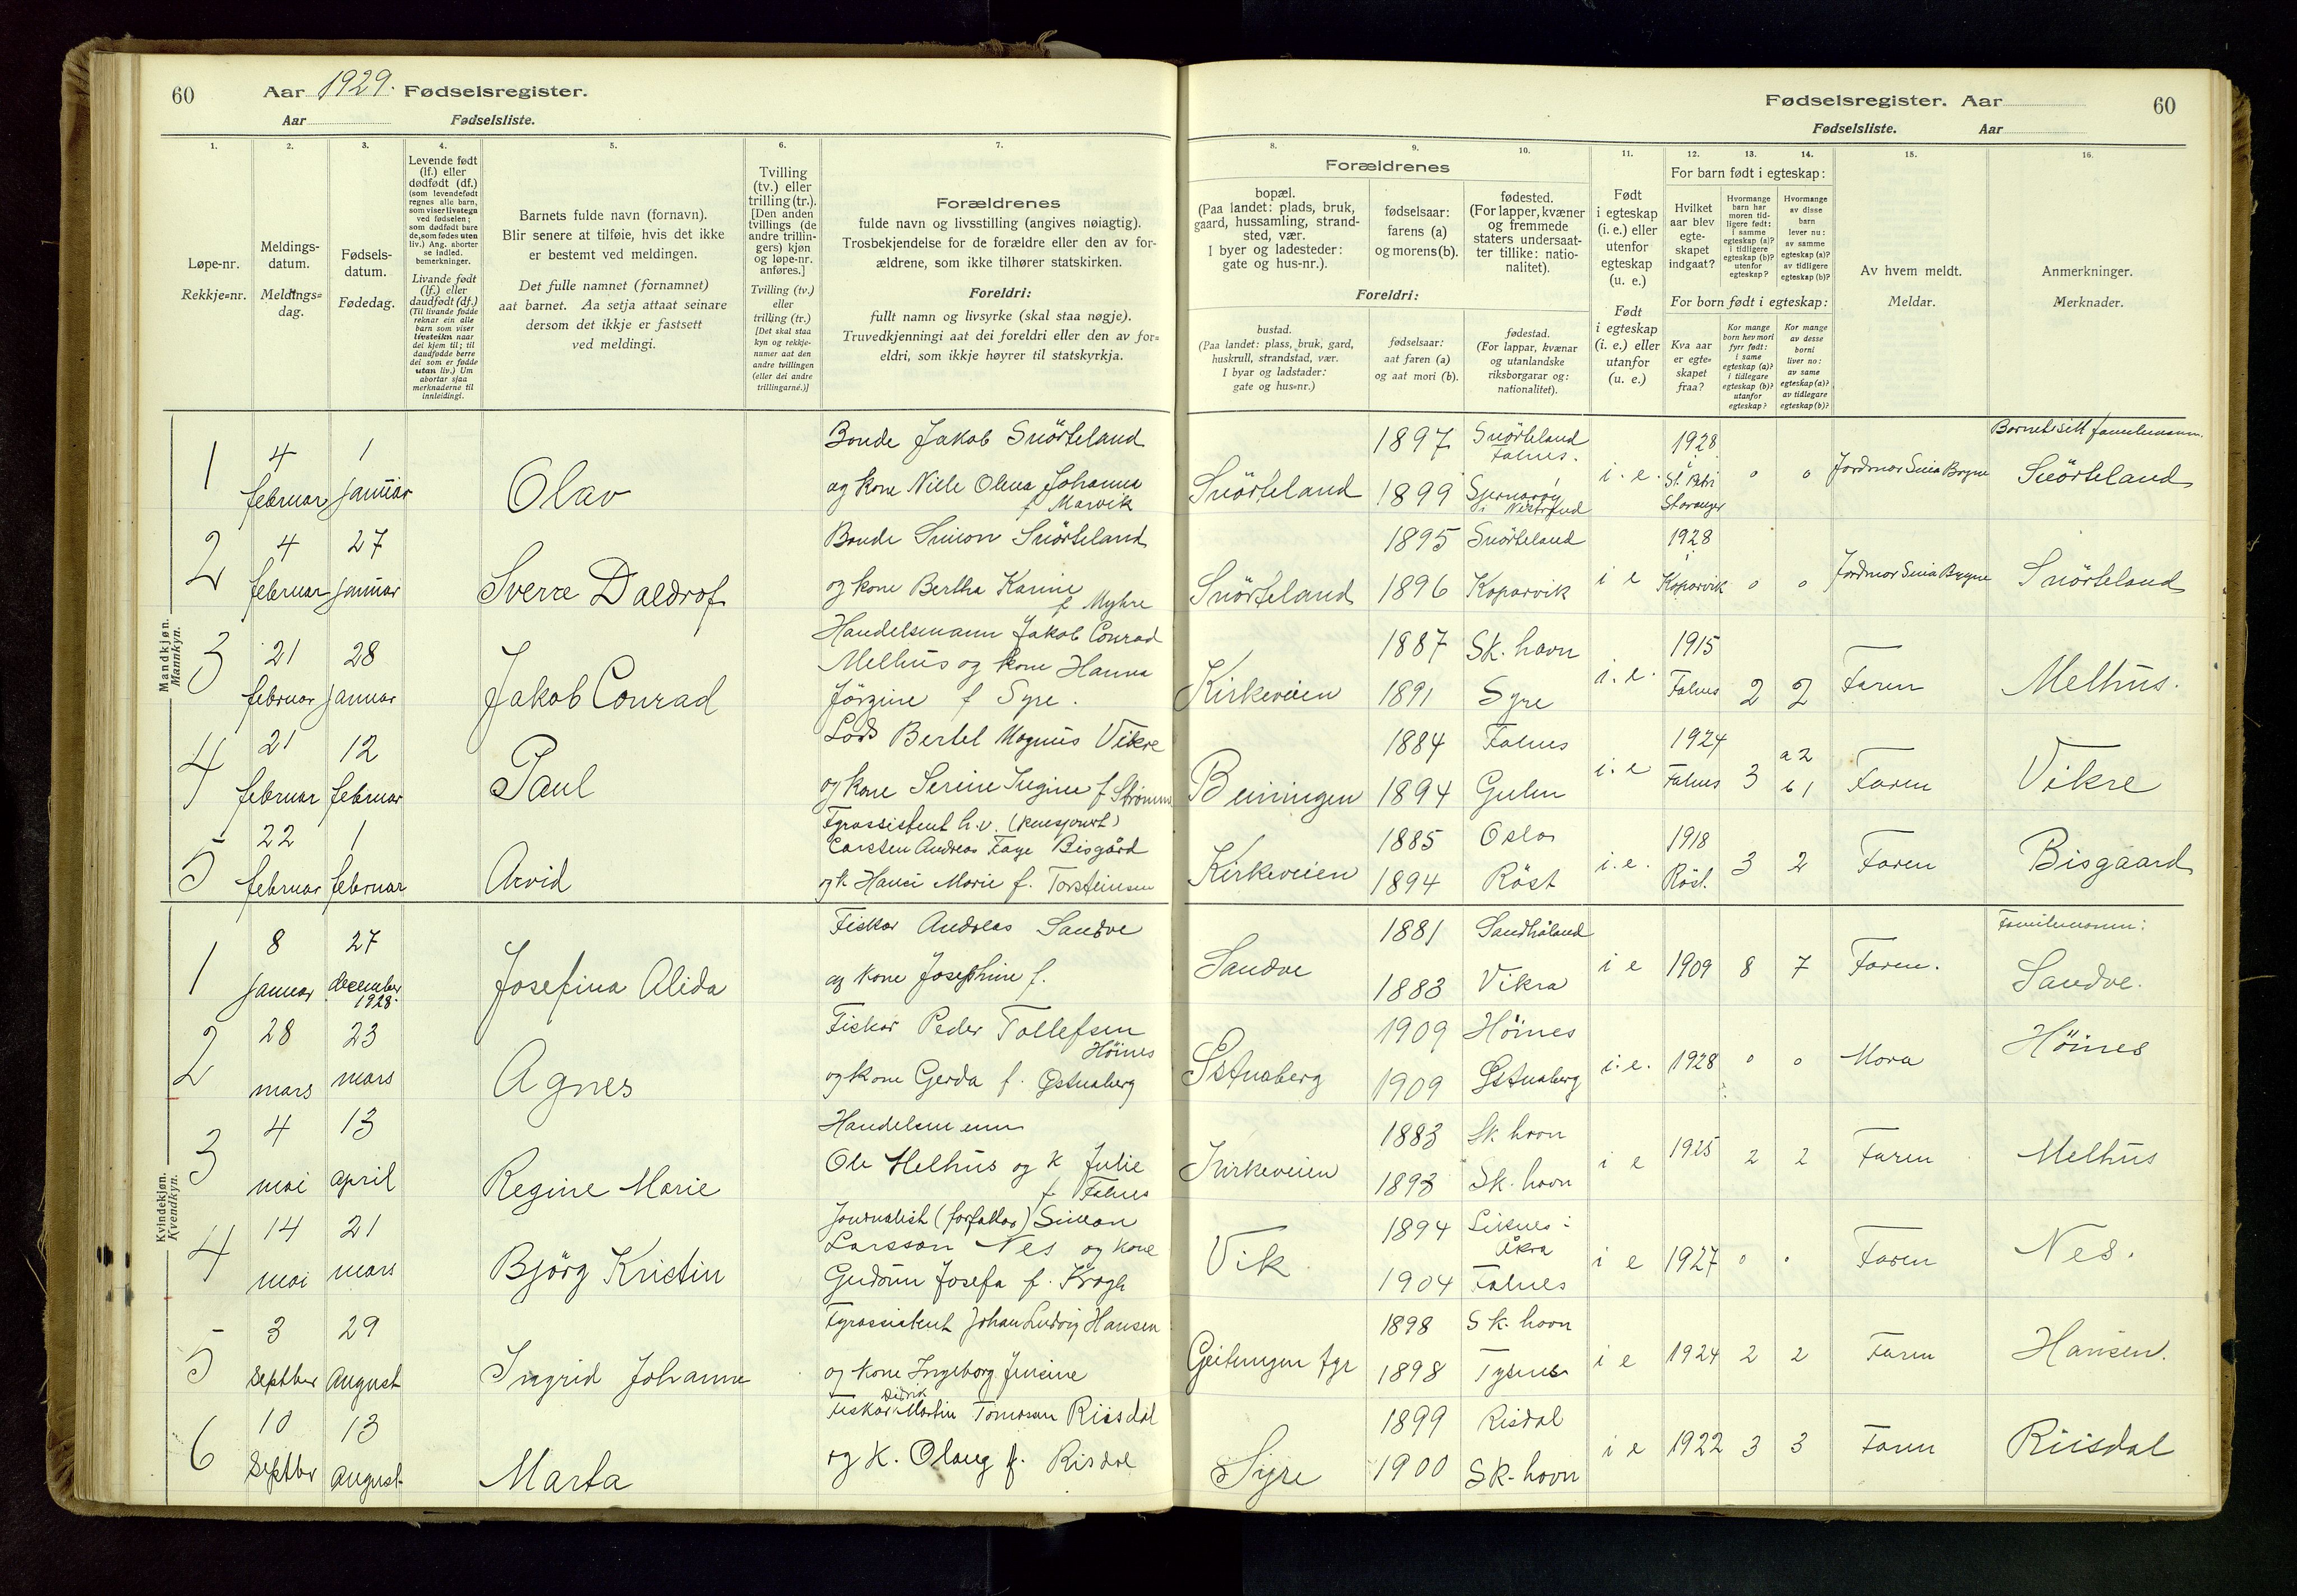 60
Aar 1929. Fødselsregister.
Aar Fødselsliste.
Fødselsregister. Aar
60
Fødselsliste. Aar
1.
2.
3.
4.
5.
6.
7.
8.
9.
10.
11.
12.
13.
14.
15.
16.
Løpe-nr.
Rekkje=nr.
Meldings-
datum.
Meldings=
dag.
Fødsels-
datum.
Fødedag.
Levende født
(lf.) eller
dødfødt (df.)
(som levendefødt
regnes alle barn,
som viser livstegn
ved fødselen;
som dødfødt bare
de, som fødes uten
liv.) Ang. aborter
se indled.
bemerkninger.
Livande født
(lf.) eller
daudfødt (df.)
(Til livande fødde
reknar ein alle
barn som viser
livsteikn naar
dei kjem til; til
daudfødde berre
dei som er fødde
utan liv.) Um
abortar sjaa
merknaderne til
innleidingi.
Barnets fulde navn (fornavn).
Blir senere at tilføie, hvis det ikke
er bestemt ved meldingen.
Det fulle namnet (fornamnet)
aat barnet. Aa setja attaat seinare
dersom det ikkje er fastsett
ved meldingi.
Tvilling
(tv.) eller
trilling (tr.).
[Den anden
tvillings (de
andre trillin-
gers) kjøn
og løpe-nr.
anføres.]
Tvilling (tv.)
eller
trilling (tr.)
[Det skal staa
kyn og rekkje-
numer aat den
andre tvillingen
(eller dei andre
trillingarne.)]
Forældrenes
fulde navn og livsstilling (angives nøiagtig).
Trosbekjendelse for de forældre eller den av for-
ældrene, som ikke tilhører statskirken.
Foreldri:
fullt namn og livsyrke (skal staa nøgje).
Truvedkjenningi aat dei foreldri eller den av for=
eldri, som ikkje høyrer til statskyrkja.
Forældrenes
bopæl.
(Paa landet: plads, bruk,
gaard, hussamling, strand-
sted, vær.
I byer og ladesteder:
gate og hus-nr.).
fødselsaar:
farens (a)
og morens (b).
fødested.
(For lapper, kvæner
og fremmede
staters undersaat-
ter tillike: natio-
nalitet).
Foreldri:
bustad.
(Paa landet: plass, bruk, gard,
huskrull, strandstad, vær.
I byar og ladstader:
gate og hus=nr.)
fødselsaar:
aat faren (a)
og aat mori (b).
fødestad.
(For lappar, kvænar
og utanlandske
riksborgarar og:
nationalitet).
Født
i egteskap
(i. e.) eller
utenfor
egteskap
(u. e.)
Født
i egteskap
(i. e.) eller
utanfor
(u. e.)
For barn født i egteskap:
Hvilket
aar blev
egte-
skapet
indgaat?
Hvormange
barn har
moren tid-
ligere født:
i samme
egteskap (a)?
i tidligere
egteskap (b)?
utenfor
egteskap?
Hvormange
av disse
barn
lever nu:
av samme
egteskap (a)?
av tidligere
egteskap (b)?
For born født i egteskap:
Kva aar
er egte=
skapet
fraa?
Kor mange
born hev mori
fyrr født:
i same
egteskap (a)?
i tidlegare
egteskap (b)?
utanfor
egteskap?
Kor mange
av desse
borni
liver no:
av same
egteskap (a)?
av tidlegare
egteskap (b)?
Av hvem meldt.
Meldar.
Anmerkninger.
Merknader.
Mandkjøn.
Mannkyn.
1
4
februar
1
januar
Olav
Bonde Jakob Snörteland
og kone Nille Olena Johanna
f Marvik
Snörteland
1897
1899
Snörteland
Falnes.
i. e.
1928
Stavanger
o
o
Snörteland
2
4
februar
27
januar
Sverre Daedrof
Bonde Simon Snörteland
og kone Bertha Karine
f Myhre
Snörteland
1895
1896
Snörteland
Koparvik
i e
1928
i
Koparvik
o
o
Snörteland
3
21
februar
28
januar
Jakob Conrad
Handelsmann Jakob Conrad
Melhus og kone Hanna
Jörgine f Syre.
Kirkeveien
1887
1891
Sk. havn
Syre
i. e.
1915
Falnes
2
2
Faren
Melhus.
4
21
februar
12
februar
Paul
Lods Bertel Magnus Vikre
og kone Serine Regine f
1884
1894
Falnes
i. e
1924
Falnes
3
a 2
b 1
Faren
Vikre
5
22
februar
1
februar
Arvid
Fyrassistent h.v.
Carsten Andreas Faye Bisgård
og k Hansi Marie f. Torsteinsen
Kirkeveien
1885
1894
Oslo
Röst
i. e.
1918
Röst.
3
2
Faren
Bisgaard
Kvindekjøn.
Kvendkyn.
1
8
januar
27
december
1928.
Josefina Alida
Fisker Andreas Sandve
og kone Josephine f.
Sandve
1881
1883
Sandhåland
Vikra
i e
1909
8
7
Faren.
Familienavn:
Sandve.
2
28
mars
23
mars
Agnes
Fisker Peder Tollefsen
Höines
og kone Gerda f. Østnaberg
Østnaberg
1909
1909
Höines
Østnaberg
i. e.
1928
o
o
Mora
Höines
3
4
mai
13
april
Regine Marie
Handelsmann
Ole Melhus og k Julie
f Falnes
Kirkeveien
1883
1893
Sk havn
Sk. havn
i e
1925
2
2
Faren
Melhus
4
14
mai
21
mars
Björg Kristin
Journalist (forfattar) Simon
Larsson Nes og kone
Gudrun Josefa f. Krogh
Vik
1894
1904
Åkra
Falnes
i e
1927
o
o
Faren
Nes.
5
3
Septber
29
August
Ingrid Johanne
Fyrassistent Johan Ludvig Hansen
og kone Ingeborg Jensine
Geitungen fyr
1898
1898
Sk. havn
Tysnes
i e
1924
2
2
Faren
Hansen.
6
10
Septber
13
August
Marta
Didrik
Fisker Martin Tomasen Riisdal
og K. Olaug f. Risdal
Syre
1899
1900
Risdal
Sk-havn
i e
1922
3
3
Faren
Riisdal